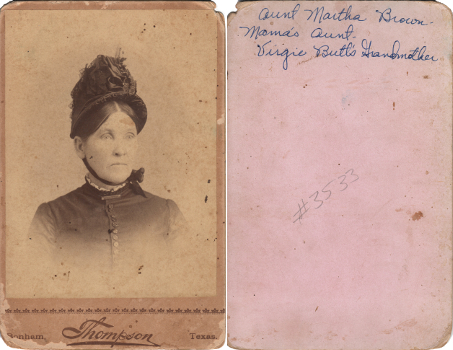 Thompson
Texas.
Aunt Martha Brown-
Mama's Aunt-
Virgie Butl's Grandmother
#3533